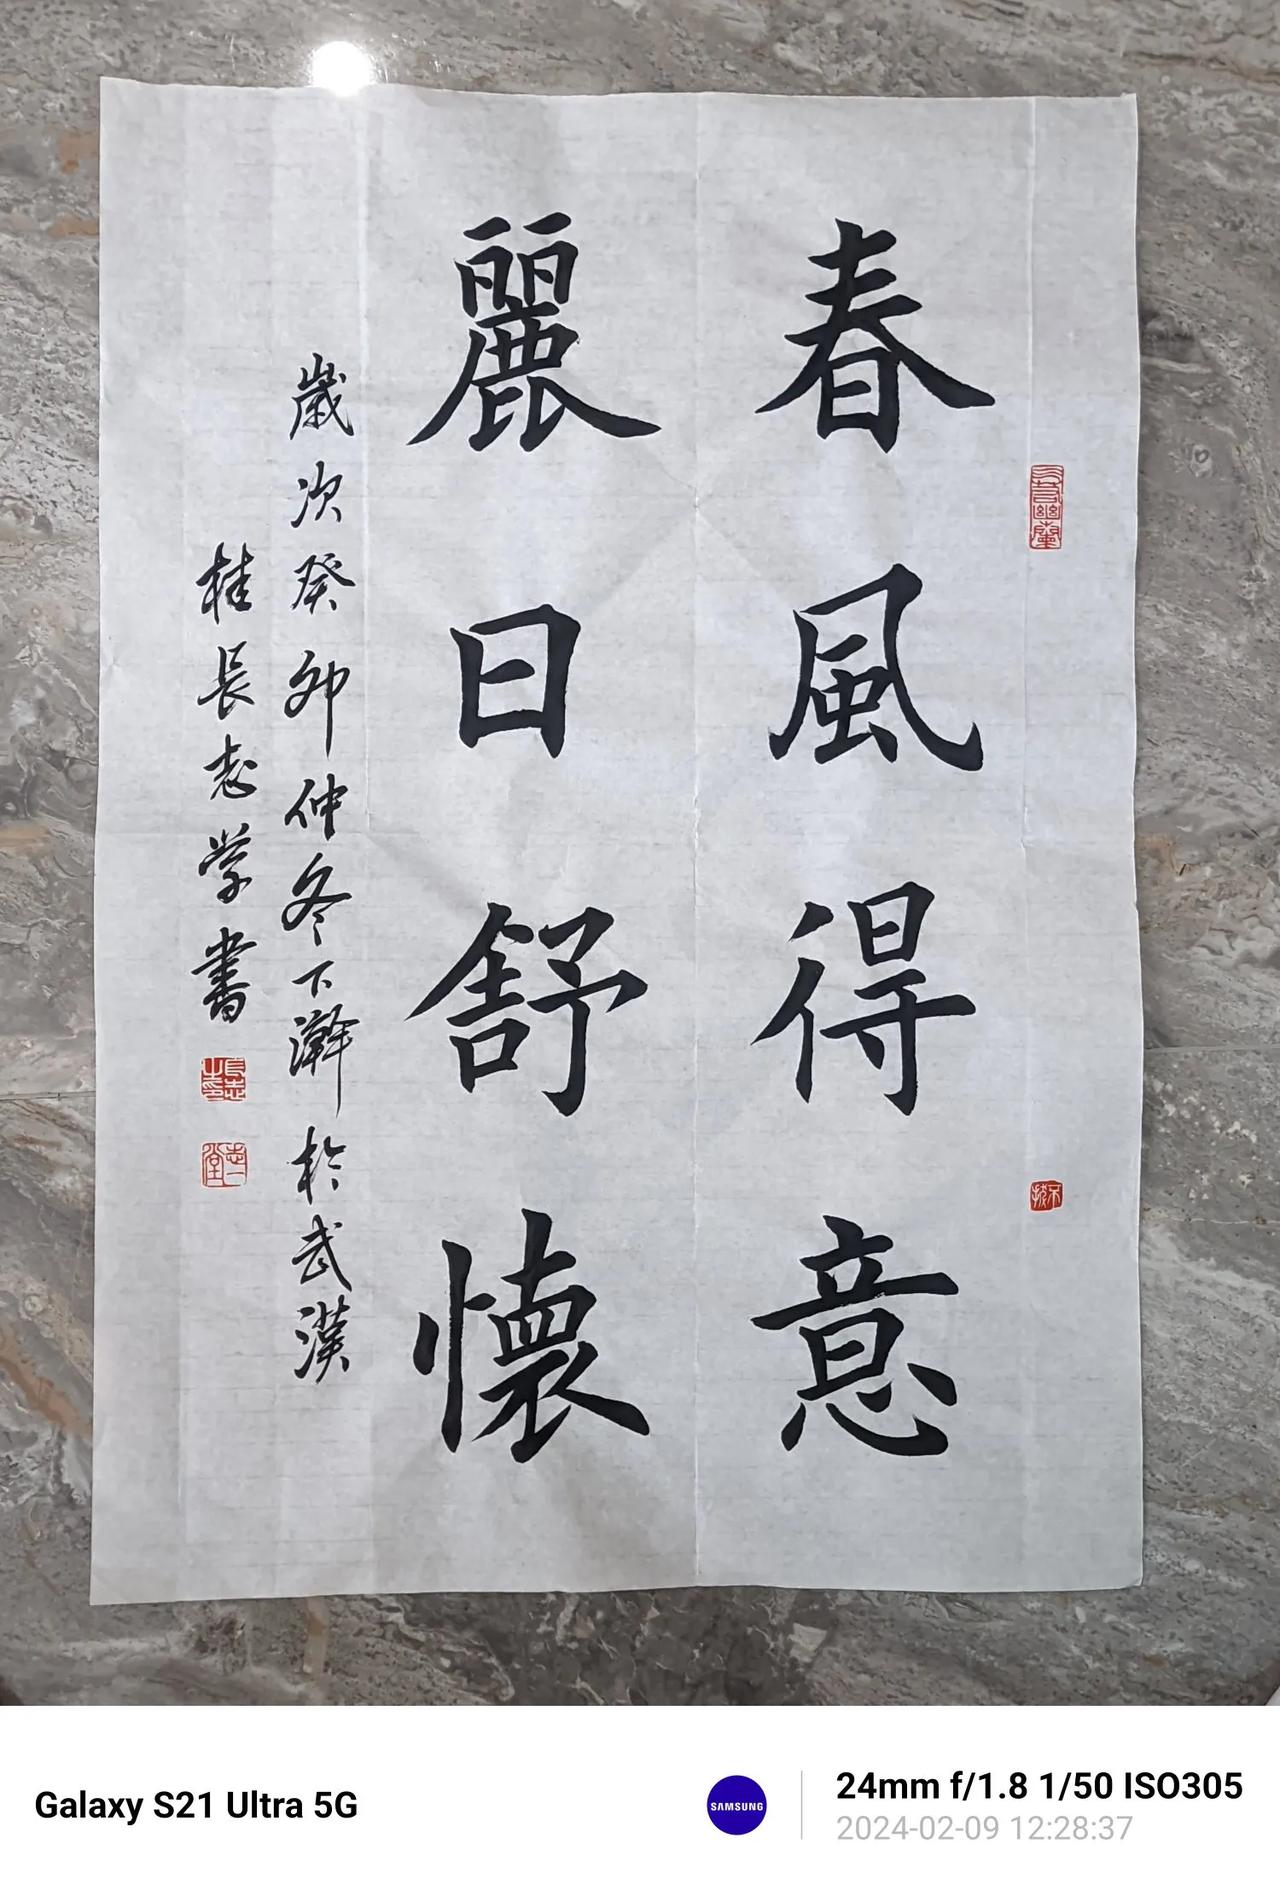 春風得意
麗日舒懷
歲次癸卯仲冬下澣於武漢
桂長志学書
Galaxy S21 Ultra 5G
SAMSUNG
24mm f/1.8 1/50 ISO305
2024-02-09 12:28:37